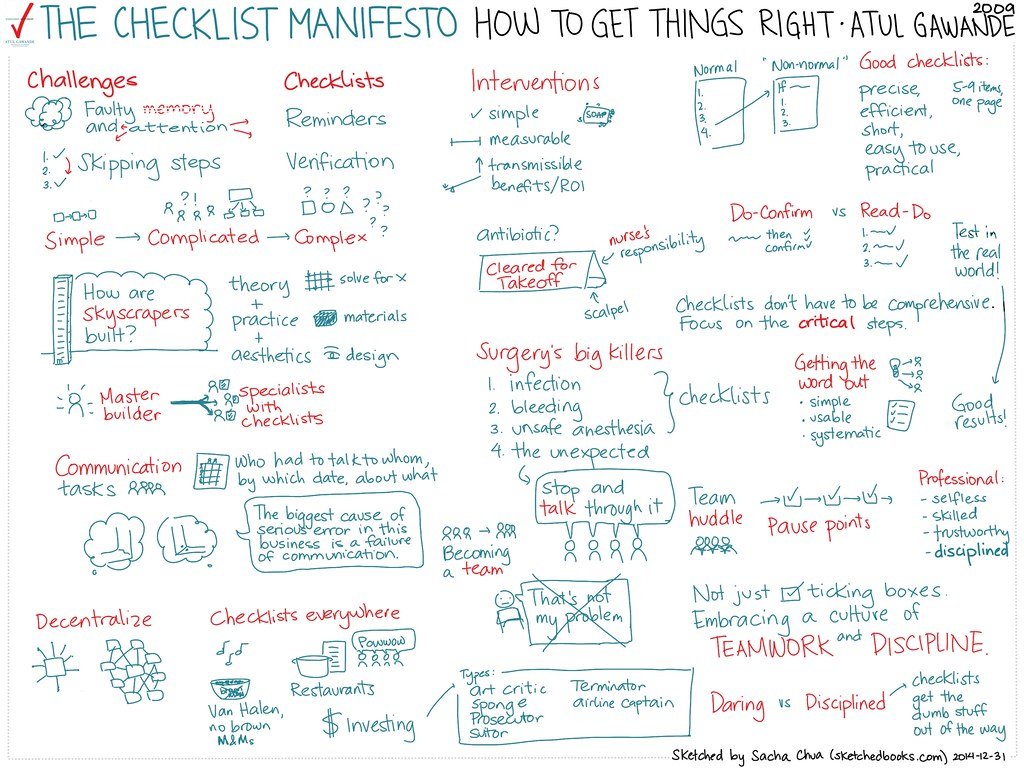 THE CHECKLIST MANIFESTO HOW TO GET THINGS RIGHT · ATUL GAWANDE
2009
ATUL GAWANDE
Challenges
Faulty memory
and attention
1.
2.
3.
Skipping steps
Simple → Complicated → Complex
?!
? ? ?
? ?
? ?
? ?
Checklists
Reminders
Verification
How are
skyscrapers
built?
theory
+
practice
+
aesthetics
solve for x
materials
design
Master
builder
specialists
with
checklists
Communication
tasks
Who had to talk to whom,
by which date, about what
The biggest cause of
serious error in this
business is a failure
of communication.
Decentralize
Checklists everywhere
Van Halen,
no brown
M&Ms
Restaurants
Powwow
$ Investing
Interventions
simple
SOAP
measurable
transmissible
benefits/ROI
antibiotic?
Cleared for
Takeoff
nurse's
responsibility
scalpel
Surgery's big killers
1. infection
2. bleeding
3. unsafe anesthesia
4. the unexpected
checklists
Stop and
talk through it
Becoming
a team
That's not
my problem
Types:
art critic
sponge
Prosecutor
suitor
Terminator
airline captain
Normal
1.
2.
3.
4.
"Non-normal"
If
1.
2.
3.
Good checklists:
precise,
efficient,
short,
easy to use,
practical
5-9 items,
one page
Do-Confirm vs Read-Do
then
confirm
1.
2.
3.
Test in
the real
world!
Checklists don't have to be comprehensive.
Focus on the critical steps.
Getting the
word out
· simple
· usable
· systematic
Good
results!
Team
huddle
Pause points
Professional:
- selfless
- skilled
- trustworthy
- disciplined
Not just ☑ ticking boxes.
Embracing a culture of
TEAMWORK and DISCIPLINE.
Daring vs Disciplined
checklists
get the
dumb stuff
out of the way
Sketched by Sacha Chua (sketchedbooks.com) 2014-12-31